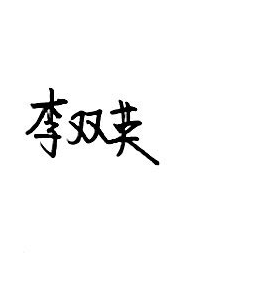 李双英